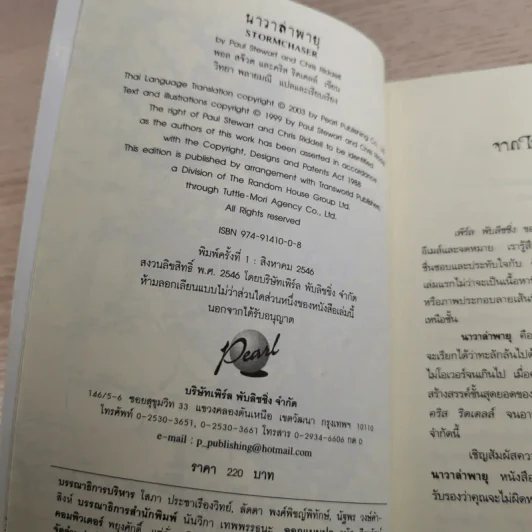 นาวาล่าพายุ
STORMCHASER
by Paul Stewart and Chris Riddell
พอล สจ๊วต และคริส ริดเดลล์ เขียน
วิทยา พลายมณี แปลและเรียบเรียง
Thai Language Translation copyright © 2003 by Pearl Publishing Co.,
Text and illustrations copyright © 1999 by Paul Stewart and Chris
The right of Paul Stewart and Chris Riddell to be identified
as the authors of this work has been asserted in accordance
with the Copyright, Designs and Patents Act 1988
This edition is published by arrangement with Transworld Publishers,
a Division of The Random House Group Ltd.
through Tuttle-Mori Agency Co., Ltd.
All Rights reserved
ISBN 974-91410-0-8
พิมพ์ครั้งที่ 1 : สิงหาคม 2546
สงวนลิขสิทธิ์ พ.ศ. 2546 โดยบริษัทเพิร์ล พับลิชชิ่ง จำกัด
ห้ามลอกเลียนแบบไม่ว่าส่วนใดส่วนหนึ่งของหนังสือเล่มนี้
นอกจากได้รับอนุญาต
Pearl
บริษัทเพิร์ล พับลิชชิ่ง จำกัด
146/5-6 ซอยสุขุมวิท 33 แขวงคลองตันเหนือ เขตวัฒนา กรุงเทพฯ 10110
โทรศัพท์ 0-2530-3651, 0-2530-3661 โทรสาร 0-2934-6606 กด 0
e-mail : p_publishing@hotmail.com
ราคา 220 บาท
บรรณาธิการบริหาร โสภา ประชาเรืองวิทย์, ลัดดา พงศ์พิชญ์พิทักษ์, นัฐพร
บรรณาธิการสำนักพิมพ์ นันวิภา เทพพรรธนะ
คอมพิวเตอร์ พยุงศักดิ์
เพิร์ล พับลิชชิ่ง
อีเมล์และจดหมาย เรารู้สึ
ชื่นชอบและประทับใจกับ
เล่มแรกไม่ว่าจะเป็นเนื้อหา
หรือภาพประกอบลายเส้น
เหนือชั้น
นาวาล่าพายุ คือ
จะเรียกได้ว่าทะลักล้นไปด้
ไม่โอเวอร์จนเกินไป เมื่อ
สร้างสรรค์ชั้นสุดยอดของ
คริส ริดเดลล์ จนอา
จำกัดนี้
เชิญสัมผัสคว
นาวาล่าพายุ หนังสือ
รับรองว่าคุณจะไม่ผิดห